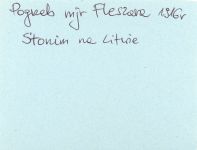 Pogrzeb mjr Fleszara 1916r
Słonim na Litwie